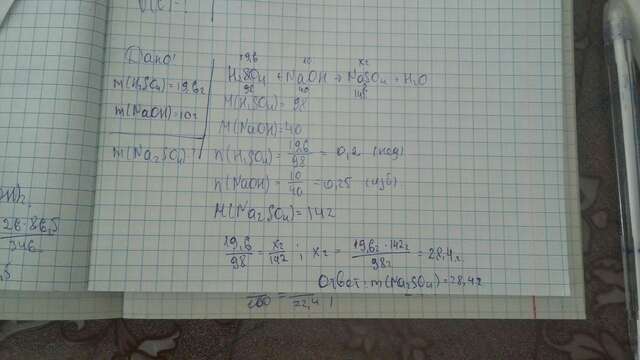 Дано:
m(H₂SO₄)=19,6г
m(NaOH)=10г
m(Na₂SO₄)?
19,6 10 xг
H₂SO₄ + NaOH → NaSO₄ + H₂O
98 40 142
M(H₂SO₄)=98
M(NaOH)=40
n(H₂SO₄)= 19,6/98 = 0,2 (нед)
n(NaOH)= 10/40 = 0,25 (изб)
M(Na₂SO₄)=142
19,6/98 = xг/142 ; xг = 19,6г·142г/98г = 28,4г
Ответ: m(Na₂SO₄)=28,4г
26·86,5
346